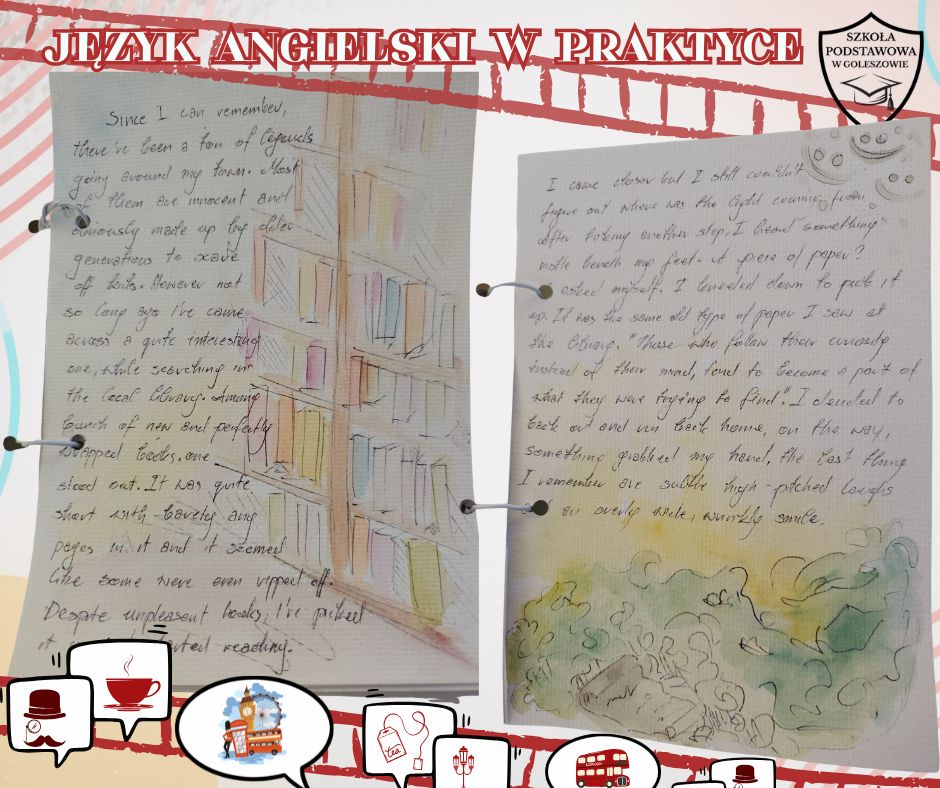 JĘZYK ANGIELSKI W PRAKTYCE
SZKOŁA
PODSTAWOWA
W GOLESZOWIE
Since I can remember,
there've been a ton of legends
going around my town. Most
of them are innocent and
obviously made up by older
generations to scare
off kids. However not
so long ago i've came
across a quite interesting
one, while searching in
the local library. Among
bunch of new and perfectly
wrapped books, one
stood out. It was quite
short with barely any
pages in it and it seemed
like some were even ripped off.
Despite unpleasent looks, i've picked
it started reading.
I came closer but I still couldn't
figure out where was the light coming from,
after taking another step, I heard something
rustle beneth my feet. A piece of paper?
I asked myself. I kneeled down to pick it
up. It was the same old type of paper I saw at
the library. "Those who follow their curiosity
instead of their mind, tend to become a part of
what they were trying to find". I decided to
back out and run back home, on the way,
something grabbed my hand, the last thing
I remember are subtle high-pitched laughs
an overly wide, wrinkly smile.
tea
LONDON